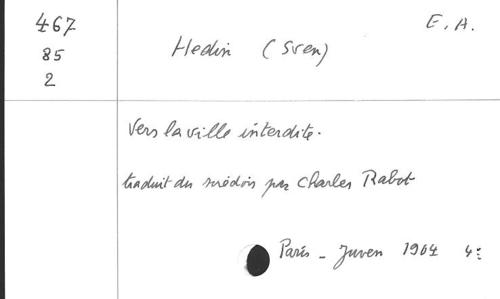 467
85
2
E. A.
Hedin (Sven)
Vers la ville interdite.
traduit du suédois par Charles Rabot
Paris - Juven 1904 4: